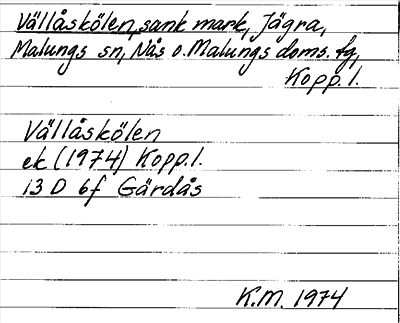 Vällåskölen, sank mark, Jägra,
Malungs sn, Nås o. Malungs doms. fg,
Kopp. l.
Vällåskölen
ek (1974) Kopp. l.
13 D 6f Gärdås
K.M. 1974